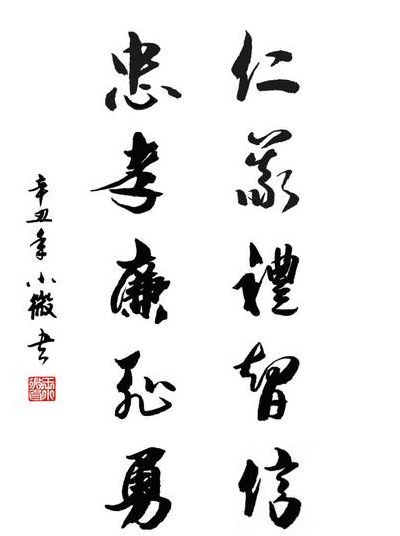 仁義禮智信
忠孝廉恥勇
辛丑年小微书